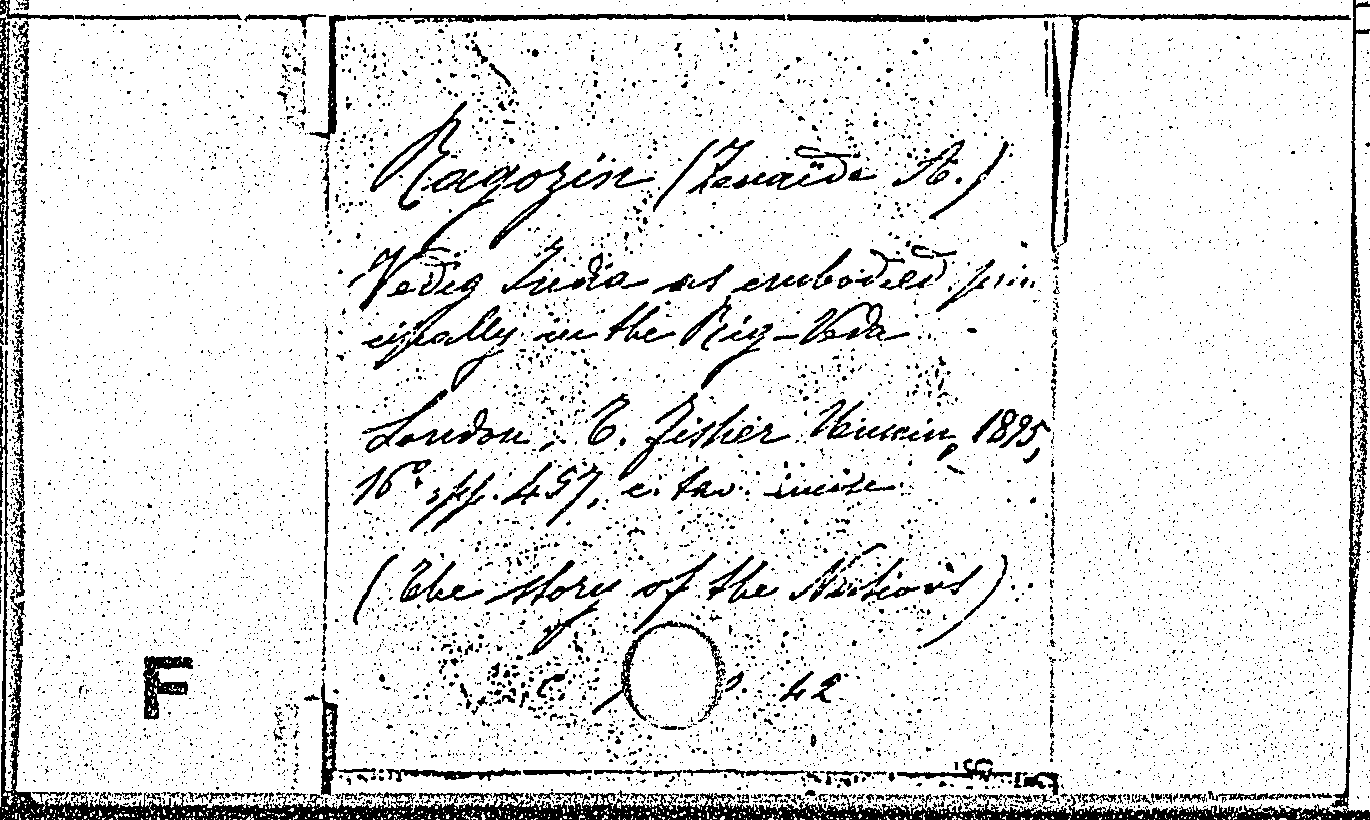 Ragozin (Zenaïde A.)
Vedig India as embodied prin
cipally in the Rig-Veda
London, T. Fisher Unwin, 1895,
16° pp. 457, c. tav. incise
(The story of the Nations)
F
C. 42